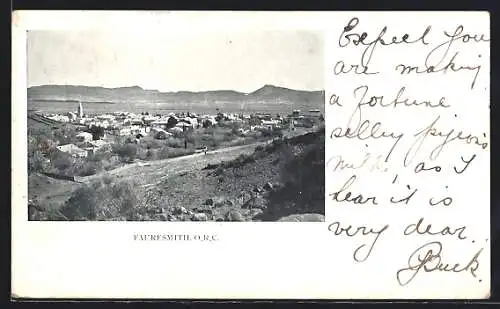 FAURESMITH. O.R.C.
Expect you
are making
a fortune
selling pigeons
milk, as I
hear it is
very dear.
Buck.